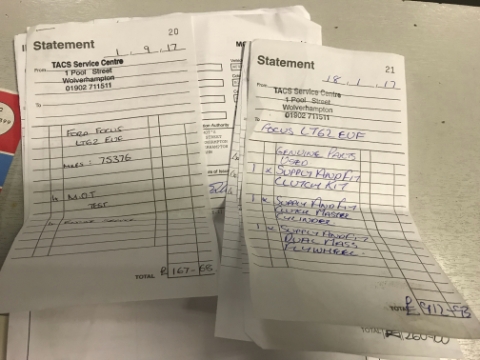 Statement
20
1 . 9 . 17
From
TACS Service Centre
1 Pool Street
Wolverhampton
01902 711511
To
FORD FOCUS
LT62 EUF
MILES: 75376
M.O.T
TEST
TOTAL
£ 167-68
Statement
21
18 . 1 . 17
From
TACS Service Centre
1 Pool Street
Wolverhampton
01902 711511
To
FOCUS LT62 EUF
GENUINE PARTS
USED
1 x SUPPLY AND FIT
CLUTCH KIT
1 x SUPPLY AND FIT
CLUTCH MASTER
CYLINDER
1 x SUPPLY AND FIT
DUAL MASS
FLYWHEEL
TOTAL
TOTAL
260-00